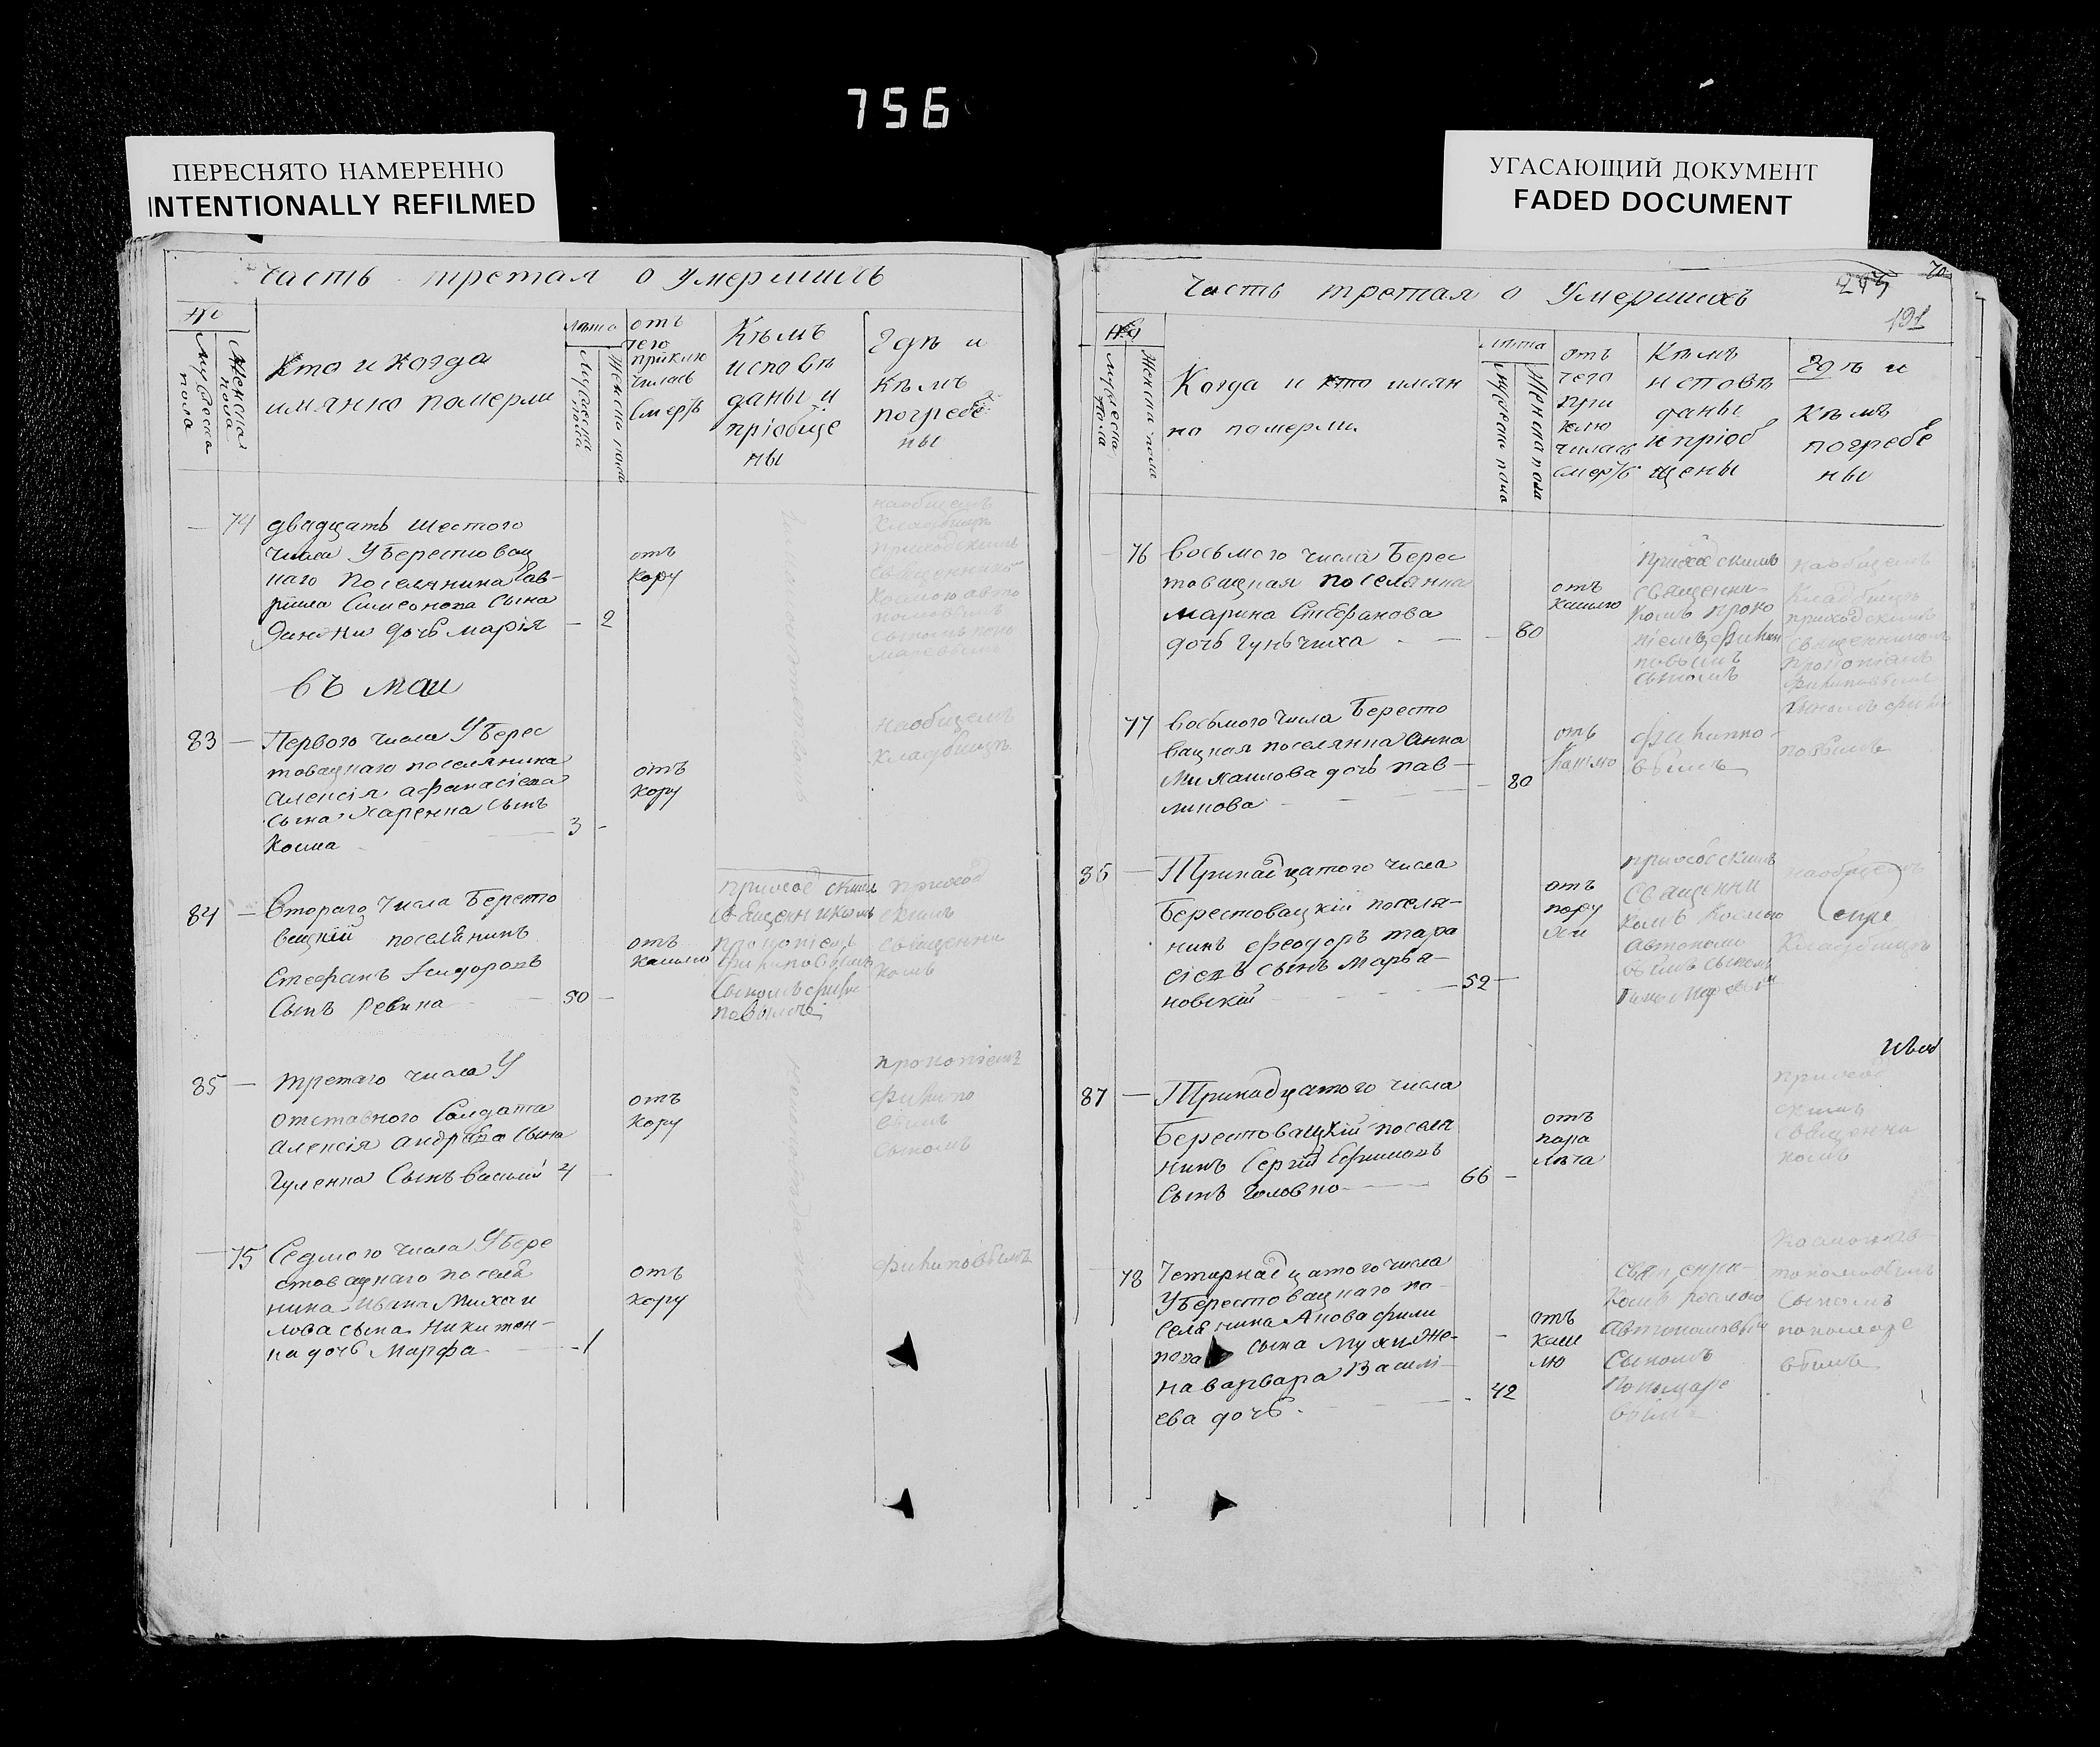 756
ПЕРЕСНЯТО НАМЕРЕННО
INTENTIONALLY REFILMED
УГАСАЮЩИЙ ДОКУМЕНТ
FADED DOCUMENT
часть третая о умершихъ
Мужеска пола
Женска пола
Кто и когда
имянно померли
лѣта
Мужеска пола
Женска пола
отъ
чего
приклю
чилась
смерть
Кѣмъ
исповѣ
даны и
пріобще
ны
Гдѣ и
кѣмъ
погребе
ны
74 двадцать шестого
числа У Берестовац
наго поселянина Гав-
рила Симеонова сына
дочь марія 2
отъ
кору
наобщемъ
кладбищѣ
приходскимъ
священнико
Космою авто
номовымъ
сыномъ поно
маревымъ
въ маи
83 Первого числа У Берес
товацнаго поселянина
Алексія Афанасіева
сына Харенка сынъ
Косма 3
отъ
кору
наобщемъ
кладбищѣ
84 Второго числа Бересто
вацкій поселянинъ
Стефанъ Исидоровъ
сынъ Ревина 50
отъ
кашлю
приходским
священникомъ
прокопіемъ
филиповымъ
сыномъ фили
повымъ
приход
скимъ
священни
комъ
85 третаго числа У
отставного солдата
Алексія Андрѣева сына
Гуленка сынъ Василій 4
отъ
кору
прокопіемъ
филипо
вымъ
сыномъ
75 Седмого числа У Бере
стовацнаго поселя
нина Ивана Михаи
лова сына Никитен-
ка дочь Марфа 1
отъ
кору
филиповымъ
Часть третая о Умершихъ
191
Мужеска пола
Женска пола
Когда и кто имян
но померли
лѣта
Мужеска пола
Женска пола
отъ
чего
при
клю
чилась
смерть
Кѣмъ
исповѣ
даны
и пріоб
щены
Гдѣ и
кѣмъ
погребе
ны
76 Восьмого числа Берес
товацкая поселянка
Марина Стефанова
дочь Гуньчиха 80
отъ
кашлю
приходскимъ
священни
комъ проко
піемъ фили
повымъ
сыномъ
наобщемъ
кладбищѣ
приходскимъ
священникомъ
прокопіемъ
филиповымъ
сыномъ фили
77 Восьмого числа Бересто
вацкая поселянка Анна
Михаилова дочь пав-
линова 80
отъ
кашлю
филиппо-
вымъ
повымъ
86 Тринадцатого числа
Берестовацкій поселя-
нинъ Феодоръ тара
сіевъ сынъ Марья-
новскій 52
отъ
приходскимъ
священни
комъ Космою
автономо
вымъ сыномъ
наобщемъ
кладбищѣ
87 Тринадцатого числа
Берестовацкій поселя
нинъ Сергій Ефимовъ
сынъ Головко 66
отъ
пара
лѣча
приход
скимъ
священни
комъ
78 Четырнадцатого числа
У Берестовацнаго по-
селянина Якова фили
пова сына Мухи же-
на варвара Васили-
ева дочь 42
отъ
каш
лю
священни-
комъ Космою
Автономовым
сыномъ
Пономаре
вымъ
Космою ав-
тономовымъ
сыномъ
пономаре
вымъ